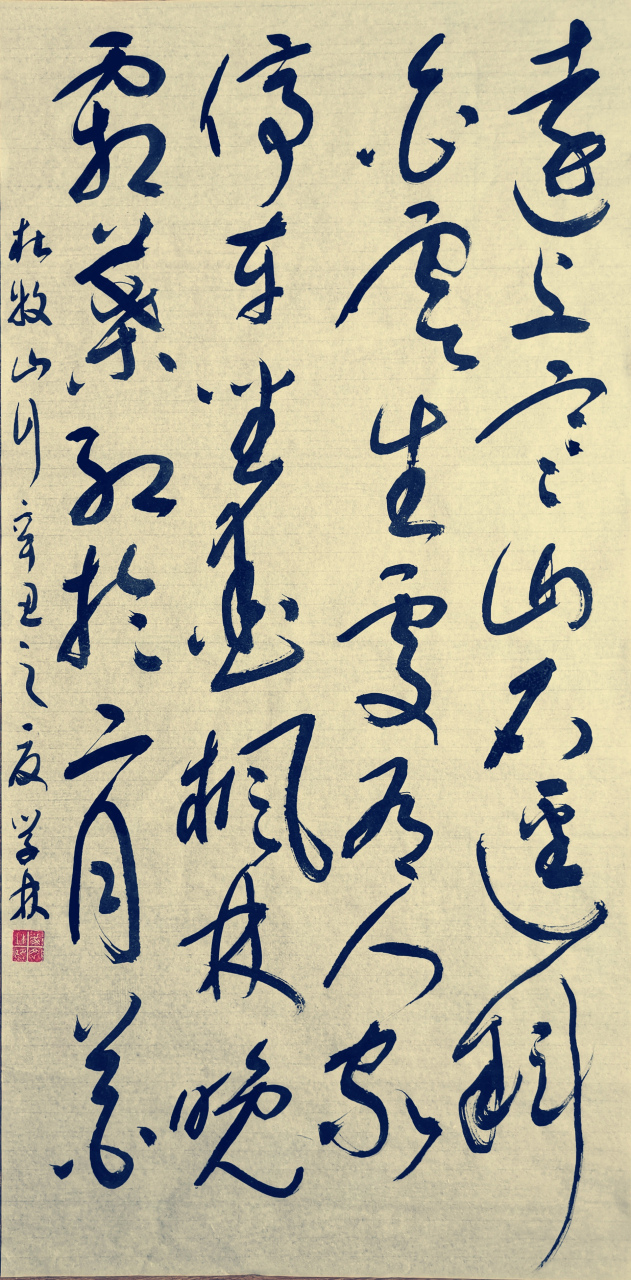 遠上寒山石迳斜
白雲生處有人家
停車坐愛楓林晚
霜葉紅於二月花
杜牧山行 辛丑之夏 学林